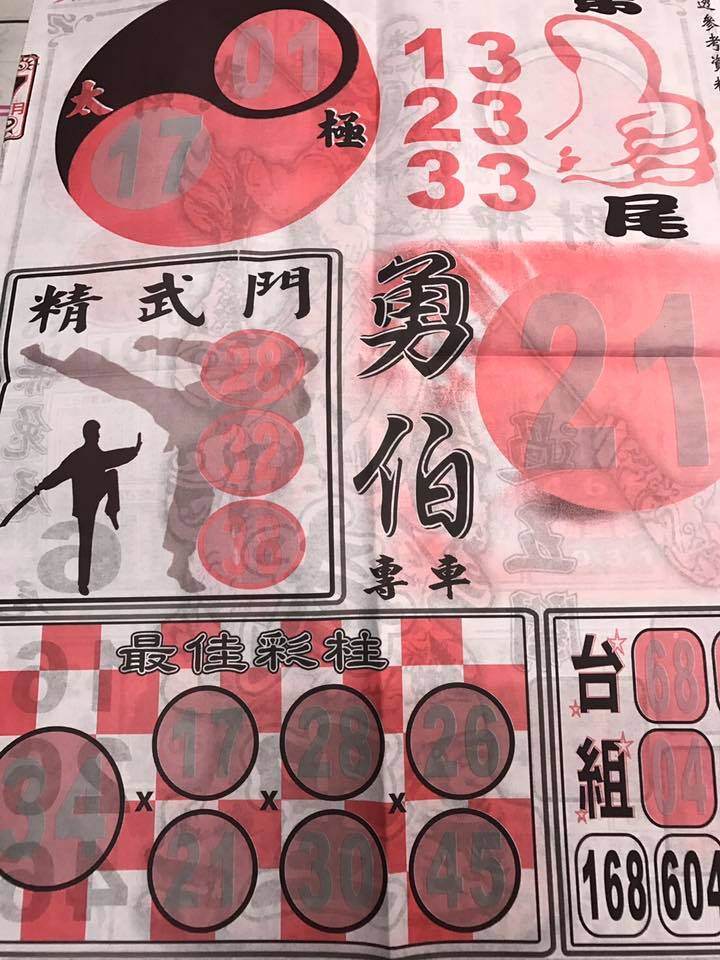 參考資料
01
太
極
17
13
23
33
尾
精武門
28
32
勇伯
專車
21
最佳彩柱
34 x 17 x 28 x 26
21 30 45
台組
68
04
168 604